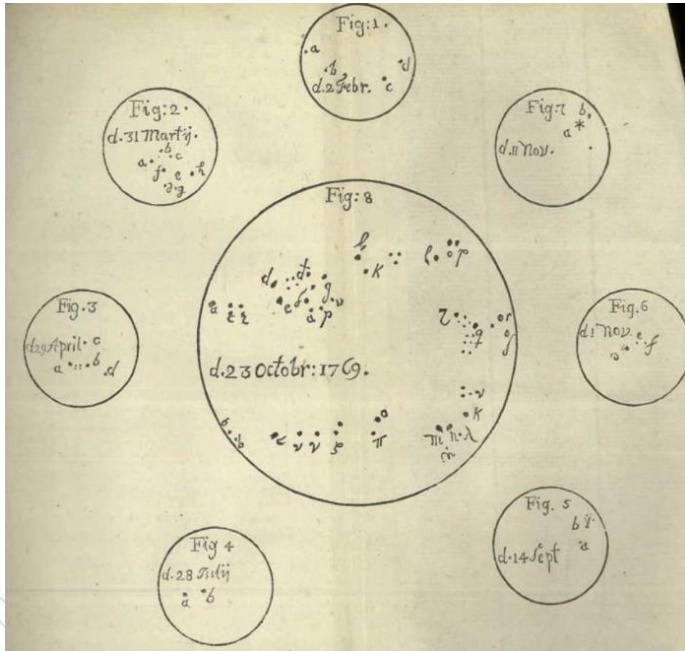 Fig: 1.
a
b
d
d. 2 Febr.
c
Fig: 2.
d. 31 Martij.
b
a c
f e h
g
Fig: 7 b.
a *
d. 11 Nov.
Fig: 8
h
K l o p
d d
g
e f v
a p
q
d. 23 Octobr: 1769.
v
K
o
b
v v
π m n λ
Fig. 3
d. 29 April. c
a b d
Fig. 6
d. 1 Nov.
e f
Fig. 5
b
d. 14 Sept a
Fig 4
d. 28 Julij
a b